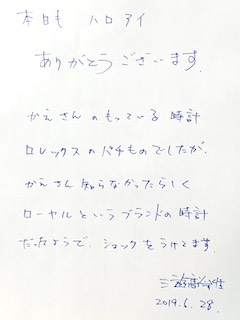 本日も ハロアイ
ありがとうございます.
かえさんのもっている 時計
ロレックスのパチものでしたが、
かえさん 知らなかったらしく
ローヤルというブランドの時計
だったようで、ショックをうけてます.
2019.6.28.